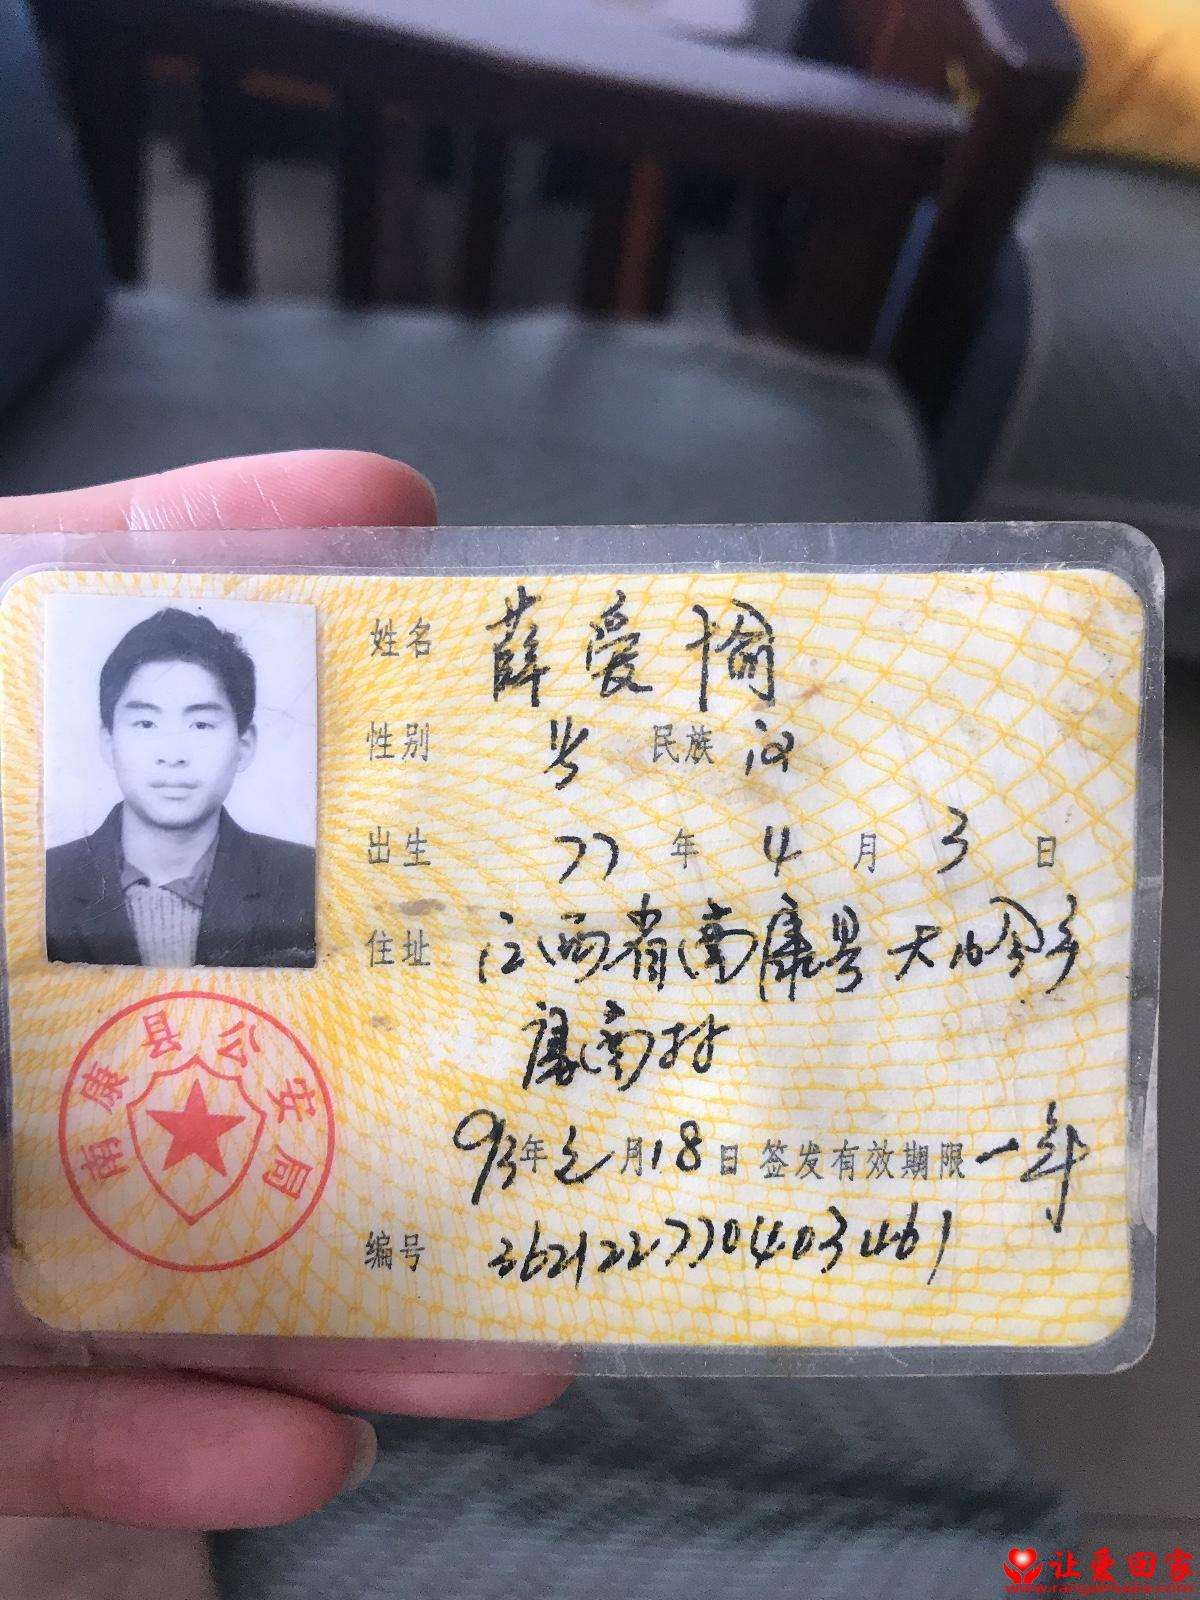 姓名 薛爱愉
性别 男 民族 汉
出生 77 年 4 月 3 日
住址 江西省南康县大岭乡
南村
93年元月18日签发有效期限一年
编号 362122770403461
南康县公安局
让爱回家
www.rangaihuijia.com